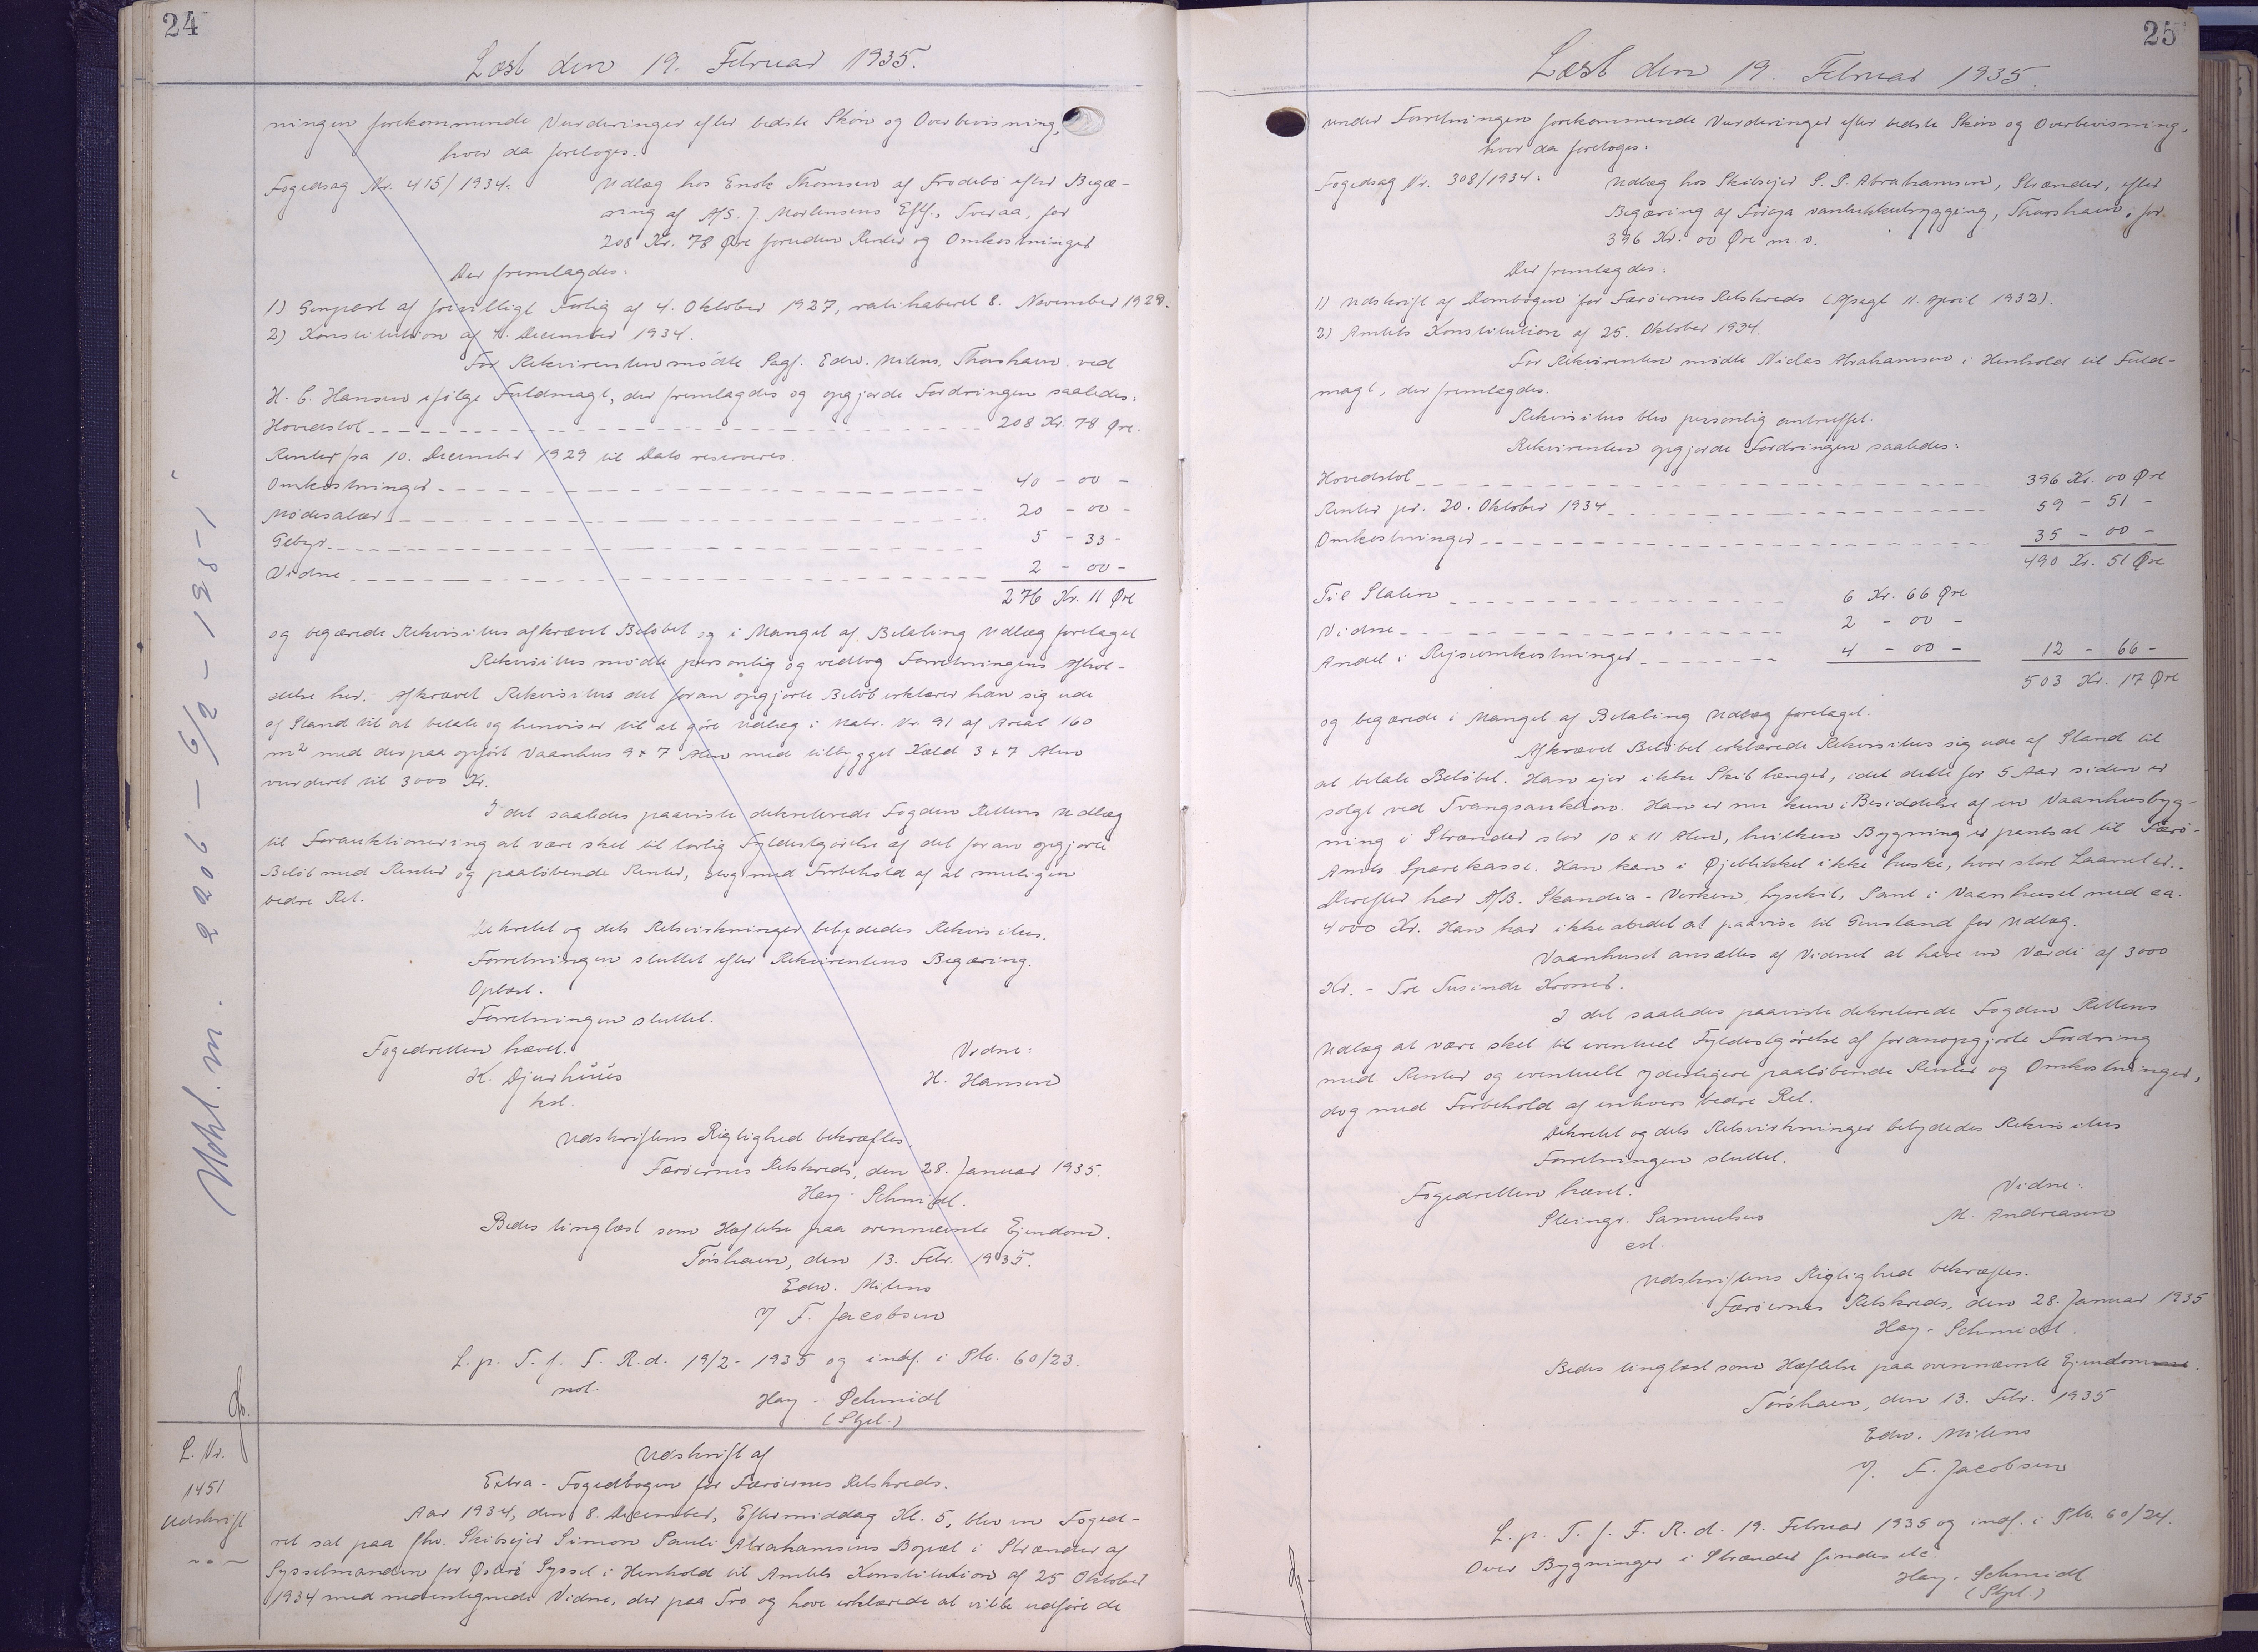 24
Læst den 19. Februar 1935.
ningen forekommende Vurderinger efter bedste Skøn og Overbevisning,
hvor da foretoges.
Fogedsag Nr. 415/1934: Udlæg hos Enok Thomsen af Frodebø efter Begæ-
ring af A/S. J. Mortensens Eftf., Tveraa, for
208 Kr. 78 Øre foruden Renter og Omkostninger
Der fremlagdes:
1) Genpart af frivilligt Forlig af 4. Oktober 1927, ratihaberet 8. November 1929.
2) Konstitution af 4. December 1934.
For Rekvirenten mødte Sagf. Edw. Mitens, Thorshavn ved
H. C. Hansen ifølge Fuldmagt, der fremlagdes og opgjorde Fordringen saaledes:
Hovedstol 208 Kr. 78 Øre.
Renter fra 10. December 1929 til Dato reserveres.
Omkostninger 40 - 00 -
Mødesalær 20 - 00 -
Gebyr 5 - 33 -
Vidne 2 - 00 -
276 Kr. 11 Øre
og begærede Rekvisitus afkrævet Beløbet og i Mangel af Betaling Udlæg foretaget
Rekvisitus mødte personlig og vedtog Forretningens Afhol-
delse her. Afkrævet Rekvisitus det foran opgjorte Beløb erklærer han sig ude
af Stand til at betale og henviser til at gøre Udlæg i Matr. Nr. 91 af Areal 160
m2 med derpaa opført Vaanhus 9 x 7 Alen med tilbygget Kæld 3 x 7 Alen
vurderet til 3000 Kr.
I det saaledes paaviste dekreterede Fogden Rettens Udlæg
til Forauktionering at være sket til lovlig Fyldestgørelse af det foran opgjorte
Beløb med Renter og paaløbende Renter, dog med Forbehold af al muligen
bedre Ret.
Dekretet og dets Retsvirkninger betydedes Rekvisitus.
Forretningen sluttet efter Rekvirentens Begæring.
Oplæst.
Forretningen sluttet.
Fogedretten hævet. Vidne:
K. Djurhuus H. Hansen
kst.
Udskriftens Rigtighed bekræftes.
Færøernes Retskreds, den 28. Januar 1935.
Hay-Schmidt.
Bedes tinglæst som Hæftelse paa ovennævnte Ejendom.
Tórshavn, den 13. Febr. 1935.
Edw. Mitens
/ F. Jacobsen
L. p. T. f. F. R. d. 19/2-1935 og indf. i Ptb. 60/23.
not.
Hay-Schmidt
(Stpl.)
L. Nr.
1451
Udskrift
Udskrift af
Extra-Fogedbogen for Færøernes Retskreds.
Aar 1934, den 8. December, Eftermiddag Kl. 5, blev en Foged-
ret sat paa fhv. Skibsejer Simon Pauli Abrahamsens Bopæl i Strænder af
Sysselmanden for Østerø Syssel i Henhold til Amtets Konstitution af 25 Oktober
1934 med medentegnede Vidne, der paa Tro og Love erklærede at ville udføre de
25
Læst den 19. Februar 1935.
under Forretningen forekommende Vurderinger efter bedste Skøn og Overbevisning,
hvor da foretoges:
Fogedsag Nr. 308/1934: Udlæg hos Skibsejer S. P. Abrahamsen, Strænder, efter
Begæring af Føroya vanlukkutrygging, Thorshavn, for
396 Kr. 00 Øre m.v.
Der fremlagdes:
1) Udskrift af Dombogen for Færøernes Retskreds (Afsagt 11. April 1932).
2) Amtets Konstitution af 25. Oktober 1934.
For Rekvirenten mødte Niclas Abrahamsen i Henhold til Fuld-
magt, der fremlagdes.
Rekvisitus blev personlig antruffet.
Rekvirenten opgjorde Fordringen saaledes:
Hovedstol 396 Kr. 00 Øre
Renter pr. 20. Oktober 1934 59 - 51 -
Omkostninger 35 - 00 -
490 Kr. 51 Øre
Til Staten 6 Kr. 66 Øre
Vidne 2 - 00 -
Andel i Rejseomkostninger 4 - 00 - 12 - 66 -
503 Kr. 17 Øre
og begærede i Mangel af Betaling Udlæg foretaget.
Afkrævet Beløbet erklærede Rekvisitus sig ude af Stand til
at betale Beløbet. Han ejer ikke Skib længer, idet dette for 5 Aar siden er
solgt ved Tvangsauktion. Han er nu kun i Besiddelse af en Vaanhusbyg-
ning i Strænder stor 10 x 11 Alen, hvilken Bygning er pantsat til Færø-
Amts Sparekasse. Han kan i Øjeblikket ikke huske, hvor stort Laanet er.
Derefter har A/B. Skandia-Verken, Lysekil, Pant i Vaanhuset med ca.
4000 Kr. Han har ikke andet at paavise til Genstand for Udlæg.
Vaanhuset ansættes af Vidnet at have en Værdi af 3000
Kr. - Tre Tusinde Kroner.
I det saaledes paaviste dekreterede Fogden Rettens
Udlæg at være sket til eventuel Fyldestgørelse af foranopgjorte Fordring
med Renter og eventuelt yderligere paaløbende Renter og Omkostninger,
dog med Forbehold af enhvers bedre Ret.
Dekretet og dets Retsvirkninger betydedes Rekvisitus
Forretningen sluttet.
Fogedretten hævet. Vidne:
Steingr. Samuelsen M. Andreasen
cst.
Udskriftens Rigtighed bekræftes.
Færøernes Retskreds, den 28. Januar 1935
Hay-Schmidt.
Bedes tinglæst som Hæftelse paa ovennævnte Ejendom.
Tórshavn, den 13. Febr. 1935
Edw. Mitens
/ F. Jacobsen
L. p. T. f. F. R. d. 19. Februar 1935 og indf. i Ptb. 60/24.
Over Bygninger i Strænder findes etc.
Hay-Schmidt
(Stpl.)